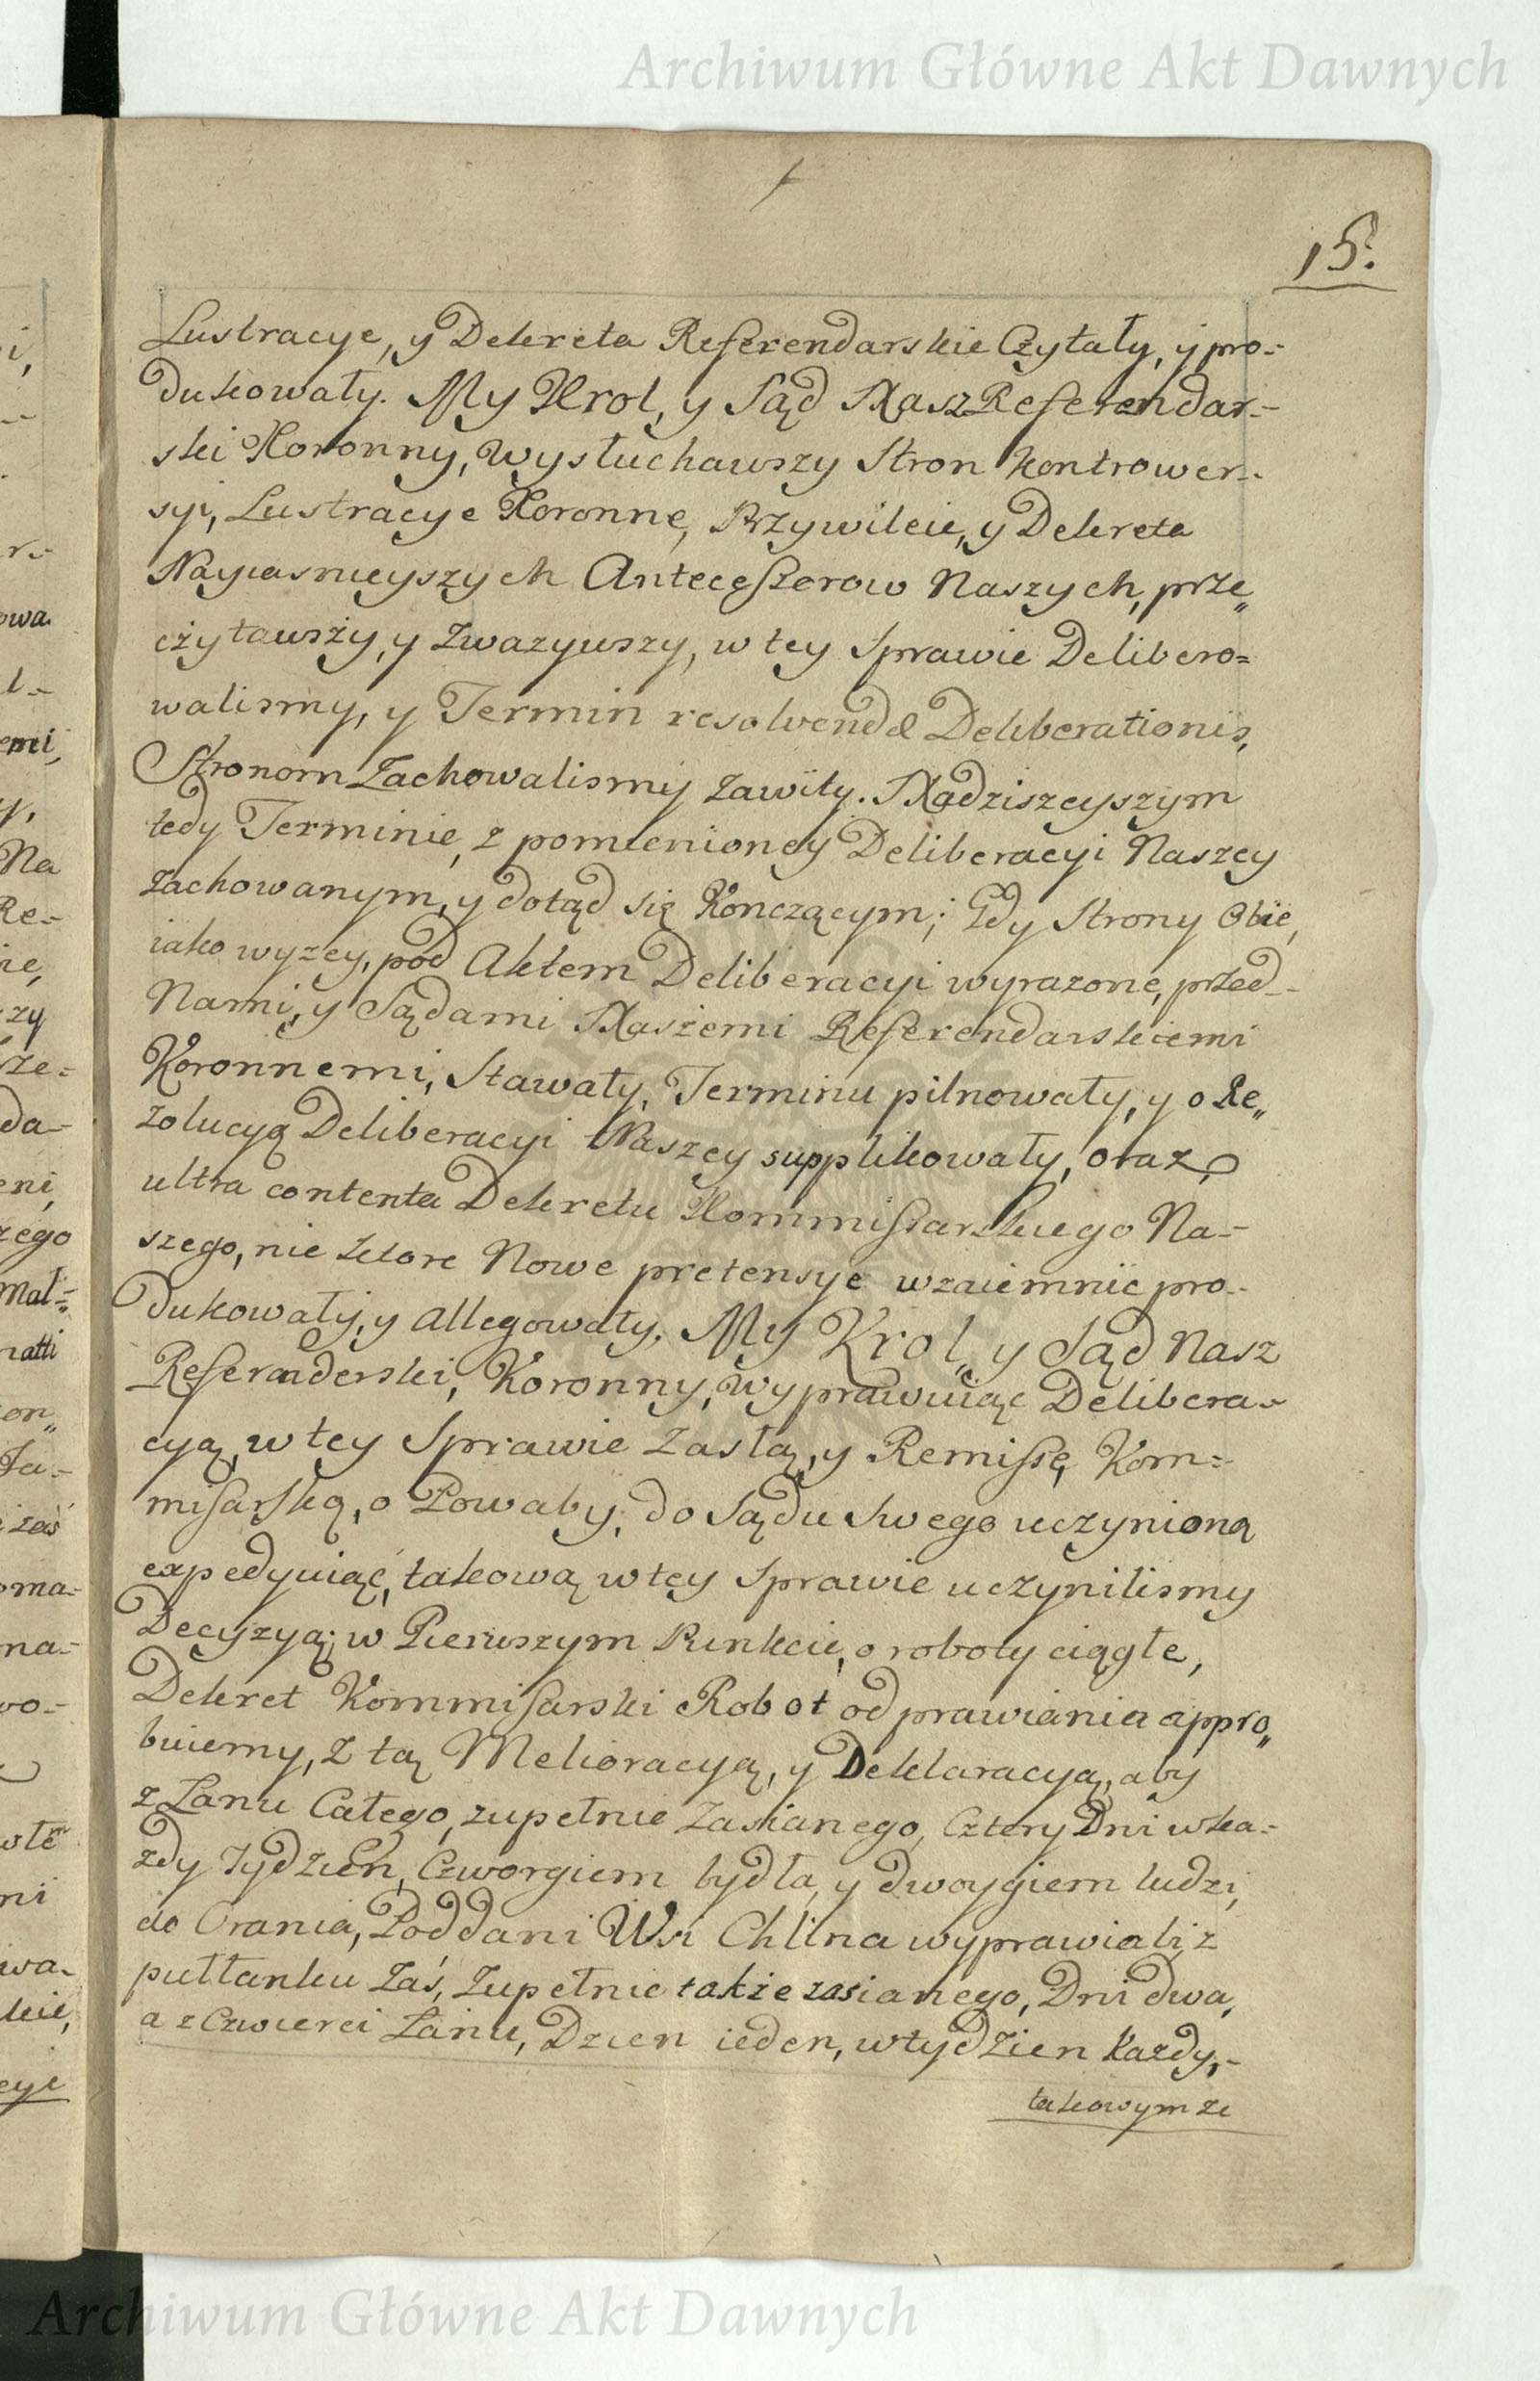 Archiwum Główne Akt Dawnych
15.
Lustracye, y Dekreta Referendarskie Czytały, y pro-
dukowały. My Krol, y Sąd Nasz Referendar-
ski Koronny, Wysłuchawszy Stron kontrower-
syi, Lustracye Koronne, Przywileie, y Dekreta
Nayiasnieyszych Antecessorow Naszych, prze„
czytawszy, y zwazywszy, w tey Sprawie Delibero=
walismy, y Termin resolvendæ Deliberationis,
Stronom Zachowalismy zawity. Na dzisieyszym
tedy Terminie, z pomienioney Deliberacyi Naszey
zachowanym, y dotąd się Konczącym; Gdy Strony Obie,
iako wyzey, pod Aktem Deliberacyi wyrazone, przed-
Nami, y Sądami Naszemi Referendarskiemi
Koronnemi, Stawały, Terminu pilnowały, y o Re„
zolucyą Deliberacyi Naszey supplikowały, oraz,
ultra contenta Dekretu Kommissarskiego Na-
szego, nie ktore Nowe pretensye wzaiemnie pro-
dukowały, y allegowały. My Krol, y Sąd Nasz
Referenderski, Koronny, Wyprawuiąc Delibera-
cyą, w tey Sprawie Zaszłą, y Remissę Kom=
misarską, o Powaby, do Sądu Swego uczynioną
expedyuiąc, takową w tey Sprawie uczynilismy
Decyzyą; w Pierwszym Punkcie, o roboty ciągłe,
Dekret Kommisarski Robot odprawiania appro„
buiemy, z tą Melioracyą, y Deklaracyą, aby
z Łanu Całego, zupełnie Zasianego, Cztery Dni w ka-
zdy Tydzien, Czworgiem bydła, y dwoygiem ludzi,
do Orania, Poddani Wsi Chlina wyprawiali, z
pułłanku Zaś, Zupełnie także zasianego, Dni dwa,
a z Czwierci Łanu, Dzien ieden, w tydzien kazdy,-
takowym ze
i,
r.-
owa
emi,
Na
Re-
zy
da-
eni,
zego
mał=
natti
on„
Ja-
zaś
oma-
na-
wo-
ni
wa-
kie,
cye
Archiwum Główne Akt Dawnych